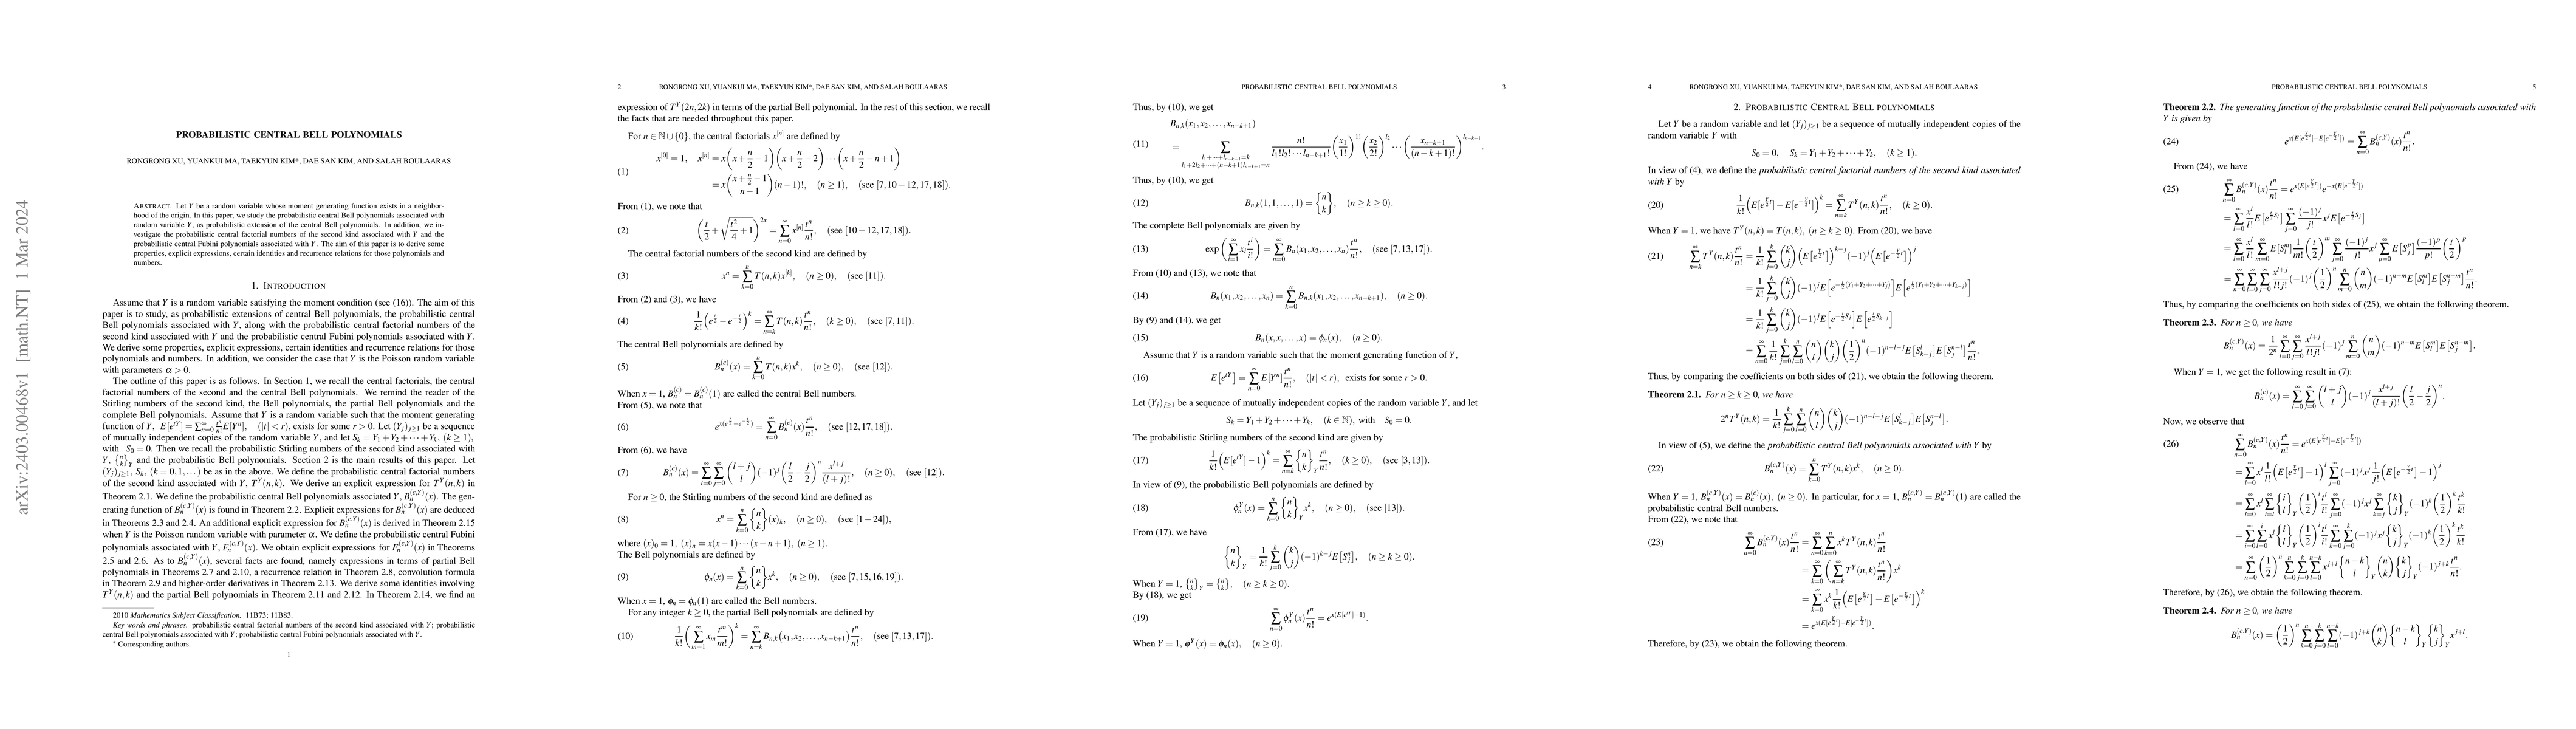 arXiv:2403.00468v1 [math.NT] 1 Mar 2024
PROBABILISTIC CENTRAL BELL POLYNOMIALS
RONGRONG XU, YUANKUI MA, TAEKYUN KIM*, DAE SAN KIM, AND SALAH BOULAARAS
ABSTRACT. Let Y be a random variable whose moment generating function exists in a neighbor-
hood of the origin. In this paper, we study the probabilistic central Bell polynomials associated with
random variable Y, as probabilistic extension of the central Bell polynomials. In addition, we in-
vestigate the probabilistic central factorial numbers of the second kind associated with Y and the
probabilistic central Fubini polynomials associated with Y. The aim of this paper is to derive some
properties, explicit expressions, certain identities and recurrence relations for those polynomials and
numbers.
1. INTRODUCTION
Assume that Y is a random variable satisfying the moment condition (see (16)). The aim of this
paper is to study, as probabilistic extensions of central Bell polynomials, the probabilistic central
Bell polynomials associated with Y, along with the probabilistic central factorial numbers of the
second kind associated with Y and the probabilistic central Fubini polynomials associated with Y.
We derive some properties, explicit expressions, certain identities and recurrence relations for those
polynomials and numbers. In addition, we consider the case that Y is the Poisson random variable
with parameters α > 0.
The outline of this paper is as follows. In Section 1, we recall the central factorials, the central
factorial numbers of the second and the central Bell polynomials. We remind the reader of the
Stirling numbers of the second kind, the Bell polynomials, the partial Bell polynomials and the
complete Bell polynomials. Assume that Y is a random variable such that the moment generating
function of Y, E[e^{tY}] = ∑_{n=0}^{∞} \frac{t^n}{n!}E[Y^n], (|t| < r), exists for some r > 0. Let (Y_j)_{j≥1} be a sequence
of mutually independent copies of the random variable Y, and let S_k = Y_1 + Y_2 + ··· + Y_k, (k ≥ 1),
with S_0 = 0. Then we recall the probabilistic Stirling numbers of the second kind associated with
Y, {n \atop k}_Y and the probabilistic Bell polynomials. Section 2 is the main results of this paper. Let
(Y_j)_{j≥1}, S_k, (k = 0, 1, ...) be as in the above. We define the probabilistic central factorial numbers
of the second kind associated with Y, T^Y(n,k). We derive an explicit expression for T^Y(n,k) in
Theorem 2.1. We define the probabilistic central Bell polynomials associated Y, B_n^{(c,Y)}(x). The gen-
erating function of B_n^{(c,Y)}(x) is found in Theorem 2.2. Explicit expressions for B_n^{(c,Y)}(x) are deduced
in Theorems 2.3 and 2.4. An additional explicit expression for B_n^{(c,Y)}(x) is derived in Theorem 2.15
when Y is the Poisson random variable with parameter α. We define the probabilistic central Fubini
polynomials associated with Y, F_n^{(c,Y)}(x). We obtain explicit expressions for F_n^{(c,Y)}(x) in Theorems
2.5 and 2.6. As to B_n^{(c,Y)}(x), several facts are found, namely expressions in terms of partial Bell
polynomials in Theorems 2.7 and 2.10, a recurrence relation in Theorem 2.8, convolution formula
in Theorem 2.9 and higher-order derivatives in Theorem 2.13. We derive some identities involving
T^Y(n,k) and the partial Bell polynomials in Theorem 2.11 and 2.12. In Theorem 2.14, we find an
2010 Mathematics Subject Classification. 11B73; 11B83.
Key words and phrases. probabilistic central factorial numbers of the second kind associated with Y; probabilistic
central Bell polynomials associated with Y; probabilistic central Fubini polynomials associated with Y.
* Corresponding authors.
1
2 RONGRONG XU, YUANKUI MA, TAEKYUN KIM*, DAE SAN KIM, AND SALAH BOULAARAS
expression of T^Y(2n,2k) in terms of the partial Bell polynomial. In the rest of this section, we recall
the facts that are needed throughout this paper.
For n ∈ ℕ ∪ {0}, the central factorials x^{[n]} are defined by
x^{[0]} = 1, x^{[n]} = x(x + \frac{n}{2} − 1)(x + \frac{n}{2} − 2)···(x + \frac{n}{2} − n + 1)
(1)
= x\binom{x + \frac{n}{2} − 1}{n − 1}(n − 1)!, (n ≥ 1), (see [7, 10 − 12, 17, 18]).
From (1), we note that
(2) (\frac{t}{2} + \sqrt{\frac{t^2}{4} + 1})^{2x} = ∑_{n=0}^{∞} x^{[n]}\frac{t^n}{n!}, (see [10 − 12, 17, 18]).
The central factorial numbers of the second kind are defined by
(3) x^n = ∑_{k=0}^{n} T(n,k)x^{[k]}, (n ≥ 0), (see [11]).
From (2) and (3), we have
(4) \frac{1}{k!}(e^{\frac{t}{2}} − e^{−\frac{t}{2}})^k = ∑_{n=k}^{∞} T(n,k)\frac{t^n}{n!}, (k ≥ 0), (see [7, 11]).
The central Bell polynomials are defined by
(5) B_n^{(c)}(x) = ∑_{k=0}^{n} T(n,k)x^k, (n ≥ 0), (see [12]).
When x = 1, B_n^{(c)} = B_n^{(c)}(1) are called the central Bell numbers.
From (5), we note that
(6) e^{x(e^{\frac{t}{2}} − e^{−\frac{t}{2}})} = ∑_{n=0}^{∞} B_n^{(c)}(x)\frac{t^n}{n!}, (see [12, 17, 18]).
From (6), we have
(7) B_n^{(c)}(x) = ∑_{l=0}^{∞}∑_{j=0}^{∞}\binom{l + j}{l}(−1)^j(\frac{l}{2} − \frac{j}{2})^n\frac{x^{l+j}}{(l + j)!}, (n ≥ 0), (see [12]).
For n ≥ 0, the Stirling numbers of the second kind are defined as
(8) x^n = ∑_{k=0}^{n}{n \atop k}(x)_k, (see [1 − 24]),
where (x)_0 = 1, (x)_n = x(x − 1)···(x − n + 1), (n ≥ 1).
The Bell polynomials are defined by
(9) φ_n(x) = ∑_{k=0}^{n}{n \atop k}x^k, (n ≥ 0), (see [7, 15, 16, 19]).
When x = 1, φ_n = φ_n(1) are called the Bell numbers.
For any integer k ≥ 0, the partial Bell polynomials are defined by
(10) \frac{1}{k!}(∑_{m=1}^{∞} x_m\frac{t^m}{m!})^k = ∑_{n=k}^{∞} B_{n,k}(x_1, x_2, ..., x_{n−k+1})\frac{t^n}{n!}, (see [7, 13, 17]).
PROBABILISTIC CENTRAL BELL POLYNOMIALS 3
Thus, by (10), we get
B_{n,k}(x_1, x_2, ..., x_{n−k+1})
(11) = ∑_{l_1+···+l_{n−k+1}=k \atop l_1+2l_2+···+(n−k+1)l_{n−k+1}=n} \frac{n!}{l_1!l_2!···l_{n−k+1}!}(\frac{x_1}{1!})^{l_1}(\frac{x_2}{2!})^{l_2}···(\frac{x_{n−k+1}}{(n − k + 1)!})^{l_{n−k+1}}.
Thus, by (10), we get
(12) B_{n,k}(1, 1, ..., 1) = {n \atop k}, (n ≥ k ≥ 0).
The complete Bell polynomials are given by
(13) exp(∑_{i=1}^{∞} x_i\frac{t^i}{i!}) = ∑_{n=0}^{∞} B_n(x_1, x_2, ..., x_n)\frac{t^n}{n!}, (see [7, 13, 17]).
From (10) and (13), we note that
(14) B_n(x_1, x_2, ..., x_n) = ∑_{k=0}^{n} B_{n,k}(x_1, x_2, ..., x_{n−k+1}), (n ≥ 0).
By (9) and (14), we get
(15) B_n(x, x, ..., x) = φ_n(x), (n ≥ 0).
Assume that Y is a random variable such that the moment generating function of Y,
(16) E[e^{tY}] = ∑_{n=0}^{∞} E[Y^n]\frac{t^n}{n!}, (|t| < r), exists for some r > 0.
Let (Y_j)_{j≥1} be a sequence of mutually independent copies of the random variable Y, and let
S_k = Y_1 + Y_2 + ··· + Y_k, (k ∈ ℕ), with S_0 = 0.
The probabilistic Stirling numbers of the second kind are given by
(17) \frac{1}{k!}(E[e^{tY}] − 1)^k = ∑_{n=k}^{∞}{n \atop k}_Y\frac{t^n}{n!}, (k ≥ 0), (see [3, 13]).
In view of (9), the probabilistic Bell polynomials are defined by
(18) φ_n^Y(x) = ∑_{k=0}^{n}{n \atop k}_Y x^k, (n ≥ 0), (see [13]).
From (17), we have
{n \atop k}_Y = \frac{1}{k!}∑_{j=0}^{k}\binom{k}{j}(−1)^{k−j}E[S_j^n], (n ≥ k ≥ 0).
When Y = 1, {n \atop k}_Y = {n \atop k}, (n ≥ k ≥ 0).
By (18), we get
(19) ∑_{n=0}^{∞} φ_n^Y(x)\frac{t^n}{n!} = e^{x(E[e^{tY}]−1)}.
When Y = 1, φ^Y(x) = φ_n(x), (n ≥ 0).
4 RONGRONG XU, YUANKUI MA, TAEKYUN KIM*, DAE SAN KIM, AND SALAH BOULAARAS
2. PROBABILISTIC CENTRAL BELL POLYNOMIALS
Let Y be a random variable and let (Y_j)_{j≥1} be a sequence of mutually independent copies of the
random variable Y with
S_0 = 0, S_k = Y_1 + Y_2 + ··· + Y_k, (k ≥ 1).
In view of (4), we define the probabilistic central factorial numbers of the second kind associated
with Y by
(20) \frac{1}{k!}(E[e^{\frac{Y}{2}t}] − E[e^{−\frac{Y}{2}t}])^k = ∑_{n=k}^{∞} T^Y(n,k)\frac{t^n}{n!}, (k ≥ 0).
When Y = 1, we have T^Y(n,k) = T(n,k), (n ≥ k ≥ 0). From (20), we have
(21) ∑_{n=k}^{∞} T^Y(n,k)\frac{t^n}{n!} = \frac{1}{k!}∑_{j=0}^{k}\binom{k}{j}(E[e^{\frac{Y}{2}t}])^{k−j}(−1)^j(E[e^{−\frac{Y}{2}t}])^j
= \frac{1}{k!}∑_{j=0}^{k}\binom{k}{j}(−1)^jE[e^{−\frac{t}{2}(Y_1+Y_2+···+Y_j)}]E[e^{\frac{t}{2}(Y_1+Y_2+···+Y_{k−j})}]
= \frac{1}{k!}∑_{j=0}^{k}\binom{k}{j}(−1)^jE[e^{−\frac{t}{2}S_j}]E[e^{\frac{t}{2}S_{k−j}}]
= ∑_{n=0}^{∞}\frac{1}{k!}∑_{j=0}^{k}∑_{l=0}^{n}\binom{n}{l}\binom{k}{j}(\frac{1}{2})^n(−1)^{n−l−j}E[S_{k−j}^l]E[S_j^{n−l}]\frac{t^n}{n!}.
Thus, by comparing the coefficients on both sides of (21), we obtain the following theorem.
Theorem 2.1. For n ≥ k ≥ 0, we have
2^nT^Y(n,k) = \frac{1}{k!}∑_{j=0}^{k}∑_{l=0}^{n}\binom{n}{l}\binom{k}{j}(−1)^{n−l−j}E[S_{k−j}^l]E[S_j^{n−l}].
In view of (5), we define the probabilistic central Bell polynomials associated with Y by
(22) B_n^{(c,Y)}(x) = ∑_{k=0}^{n} T^Y(n,k)x^k, (n ≥ 0).
When Y = 1, B_n^{(c,Y)}(x) = B_n^{(c)}(x), (n ≥ 0). In particular, for x = 1, B_n^{(c,Y)} = B_n^{(c,Y)}(1) are called the
probabilistic central Bell numbers.
From (22), we note that
(23) ∑_{n=0}^{∞} B_n^{(c,Y)}(x)\frac{t^n}{n!} = ∑_{n=0}^{∞}∑_{k=0}^{n} x^kT^Y(n,k)\frac{t^n}{n!}
= ∑_{k=0}^{∞}(∑_{n=k}^{∞} T^Y(n,k)\frac{t^n}{n!})x^k
= ∑_{k=0}^{∞} x^k\frac{1}{k!}(E[e^{\frac{Y}{2}t}] − E[e^{−\frac{Y}{2}t}])^k
= e^{x(E[e^{\frac{Y}{2}t}]−E[e^{−\frac{Y}{2}t}])}.
Therefore, by (23), we obtain the following theorem.
PROBABILISTIC CENTRAL BELL POLYNOMIALS 5
Theorem 2.2. The generating function of the probabilistic central Bell polynomials associated with
Y is given by
(24) e^{x(E[e^{\frac{Y}{2}t}]−E[e^{−\frac{Y}{2}t}])} = ∑_{n=0}^{∞} B_n^{(c,Y)}(x)\frac{t^n}{n!}.
From (24), we have
(25) ∑_{n=0}^{∞} B_n^{(c,Y)}(x)\frac{t^n}{n!} = e^{x(E[e^{\frac{Y}{2}t}])}e^{−x(E[e^{−\frac{Y}{2}t}])}
= ∑_{l=0}^{∞}\frac{x^l}{l!}E[e^{\frac{t}{2}S_l}]∑_{j=0}^{∞}\frac{(−1)^j}{j!}x^jE[e^{−\frac{t}{2}S_j}]
= ∑_{l=0}^{∞}\frac{x^l}{l!}∑_{m=0}^{∞}E[S_l^m]\frac{1}{m!}(\frac{t}{2})^m∑_{j=0}^{∞}\frac{(−1)^j}{j!}x^j∑_{p=0}^{∞}E[S_j^p]\frac{(−1)^p}{p!}(\frac{t}{2})^p
= ∑_{n=0}^{∞}∑_{l=0}^{∞}∑_{j=0}^{∞}\frac{x^{l+j}}{l!j!}(−1)^j(\frac{1}{2})^n∑_{m=0}^{n}\binom{n}{m}(−1)^{n−m}E[S_l^m]E[S_j^{n−m}]\frac{t^n}{n!}.
Thus, by comparing the coefficients on both sides of (25), we obtain the following theorem.
Theorem 2.3. For n ≥ 0, we have
B_n^{(c,Y)}(x) = \frac{1}{2^n}∑_{l=0}^{∞}∑_{j=0}^{∞}\frac{x^{l+j}}{l!j!}(−1)^j∑_{m=0}^{n}\binom{n}{m}(−1)^{n−m}E[S_l^m]E[S_j^{n−m}].
When Y = 1, we get the following result in (7):
B_n^{(c)}(x) = ∑_{l=0}^{∞}∑_{j=0}^{∞}\binom{l + j}{l}(−1)^j\frac{x^{l+j}}{(l + j)!}(\frac{l}{2} − \frac{j}{2})^n.
Now, we observe that
(26) ∑_{n=0}^{∞} B_n^{(c,Y)}(x)\frac{t^n}{n!} = e^{x(E[e^{\frac{Y}{2}t}]−E[e^{−\frac{Y}{2}t}])}
= ∑_{l=0}^{∞} x^l\frac{1}{l!}(E[e^{\frac{Y}{2}t}] − 1)^l∑_{j=0}^{∞}(−1)^jx^j\frac{1}{j!}(E[e^{−\frac{Y}{2}t}] − 1)^j
= ∑_{l=0}^{∞} x^l∑_{i=l}^{∞}{i \atop l}_Y(\frac{1}{2})^i\frac{t^i}{i!}∑_{j=0}^{∞}(−1)^jx^j∑_{k=j}^{∞}{k \atop j}_Y(−1)^k(\frac{1}{2})^k\frac{t^k}{k!}
= ∑_{i=0}^{∞}∑_{l=0}^{i} x^l{i \atop l}_Y(\frac{1}{2})^i\frac{t^i}{i!}∑_{k=0}^{∞}∑_{j=0}^{k}(−1)^jx^j{k \atop j}_Y(−1)^k(\frac{1}{2})^k\frac{t^k}{k!}
= ∑_{n=0}^{∞}(\frac{1}{2})^n∑_{k=0}^{n}∑_{j=0}^{k}∑_{l=0}^{n−k} x^{j+l}{n − k \atop l}_Y\binom{n}{k}{k \atop j}_Y(−1)^{j+k}\frac{t^n}{n!}.
Therefore, by (26), we obtain the following theorem.
Theorem 2.4. For n ≥ 0, we have
B_n^{(c,Y)}(x) = (\frac{1}{2})^n∑_{k=0}^{n}∑_{j=0}^{k}∑_{l=0}^{n−k}(−1)^{j+k}\binom{n}{k}{n − k \atop l}_Y{k \atop j}_Y x^{j+l}.